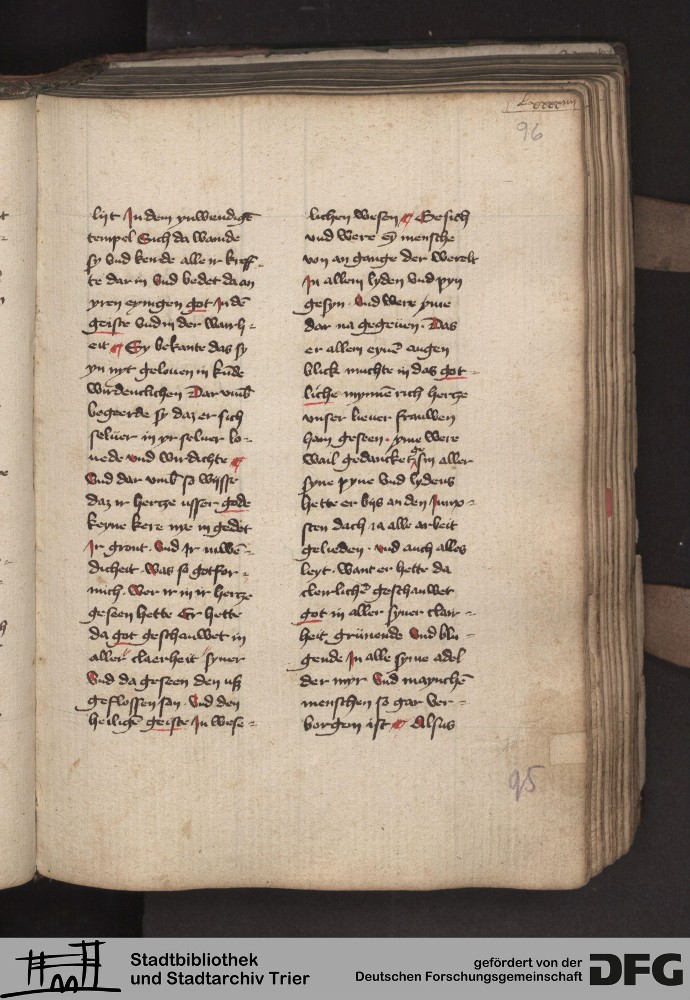 96
lijt In dem ynwendigē
tempel Sich da wande
sy vnd kende alle ir kreff-
te dar in vnd bedet da an
yren eynigen got In dē
geiste vnd in der wairh-
eit Sy bekante das sy
yn nyt gelouen in kūde
wirdenclichen Dar vmb
begeerde sy daz er sich
seluer in yr seluer lo-
uede vnd wirdichte
Vnd dar vmb so wysse
daz ir hertze vsser gode
keyne kere nye in gedet
Ir gront. Vnd Ir inwē-
dicheit. Was so gotfor-
mich. Wer ir in ir hertze
geseen hette Er hette
da got geschauwet in
aller claerheit syner
Vnd da geseen den uß
geflossen son. Vnd den
heiligē geiste In wese-
lichen wesen Ge sich
vnd were eȳ mensche
von an gange der werelt
In allem lyden vnd pyn
gesyn. Vnd were yme
dar na gegeuen. Das
er allein eynē augen
blick muchte in das got-
liche mynnērich hertze
vnser lieuer frauwen
hain geseen. yme were
wail gedancket sin aller
syne pyne vnd lydens
hette er biß an den Junx-
sten dach ia alle arbeit
gelieden. vnd auch alles
leyt. Want er hette da
cleirlichē geschauwet
got in aller syner clair-
heit grünende Vnd blu-
gende In alle syme adel
der myr Vnd maynchē
menschen so gar ver-
borgen ist Alsus
95
Stadtbibliothek
und Stadtarchiv Trier
gefördert von der
Deutschen Forschungsgemeinschaft
DFG